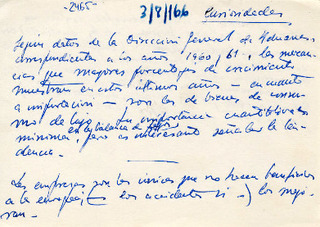 -2465-
3/8/166
Curiosidades
Según datos de la Dirección General de Aduanas
correspondientes a los años 1960, 61, las mercan-
cías que mayores porcentajes de crecimiento
muestran en estos últimos años - en cuanto
a importación - son los de bienes de consu-
mo de lujo. Su importancia cuantitativa es
en la balanza de
mínima pero es interesante señalar la ten-
dencia. -
Las empresas son las únicas que no hacen beneficios
a la (- los accidentes si -) los